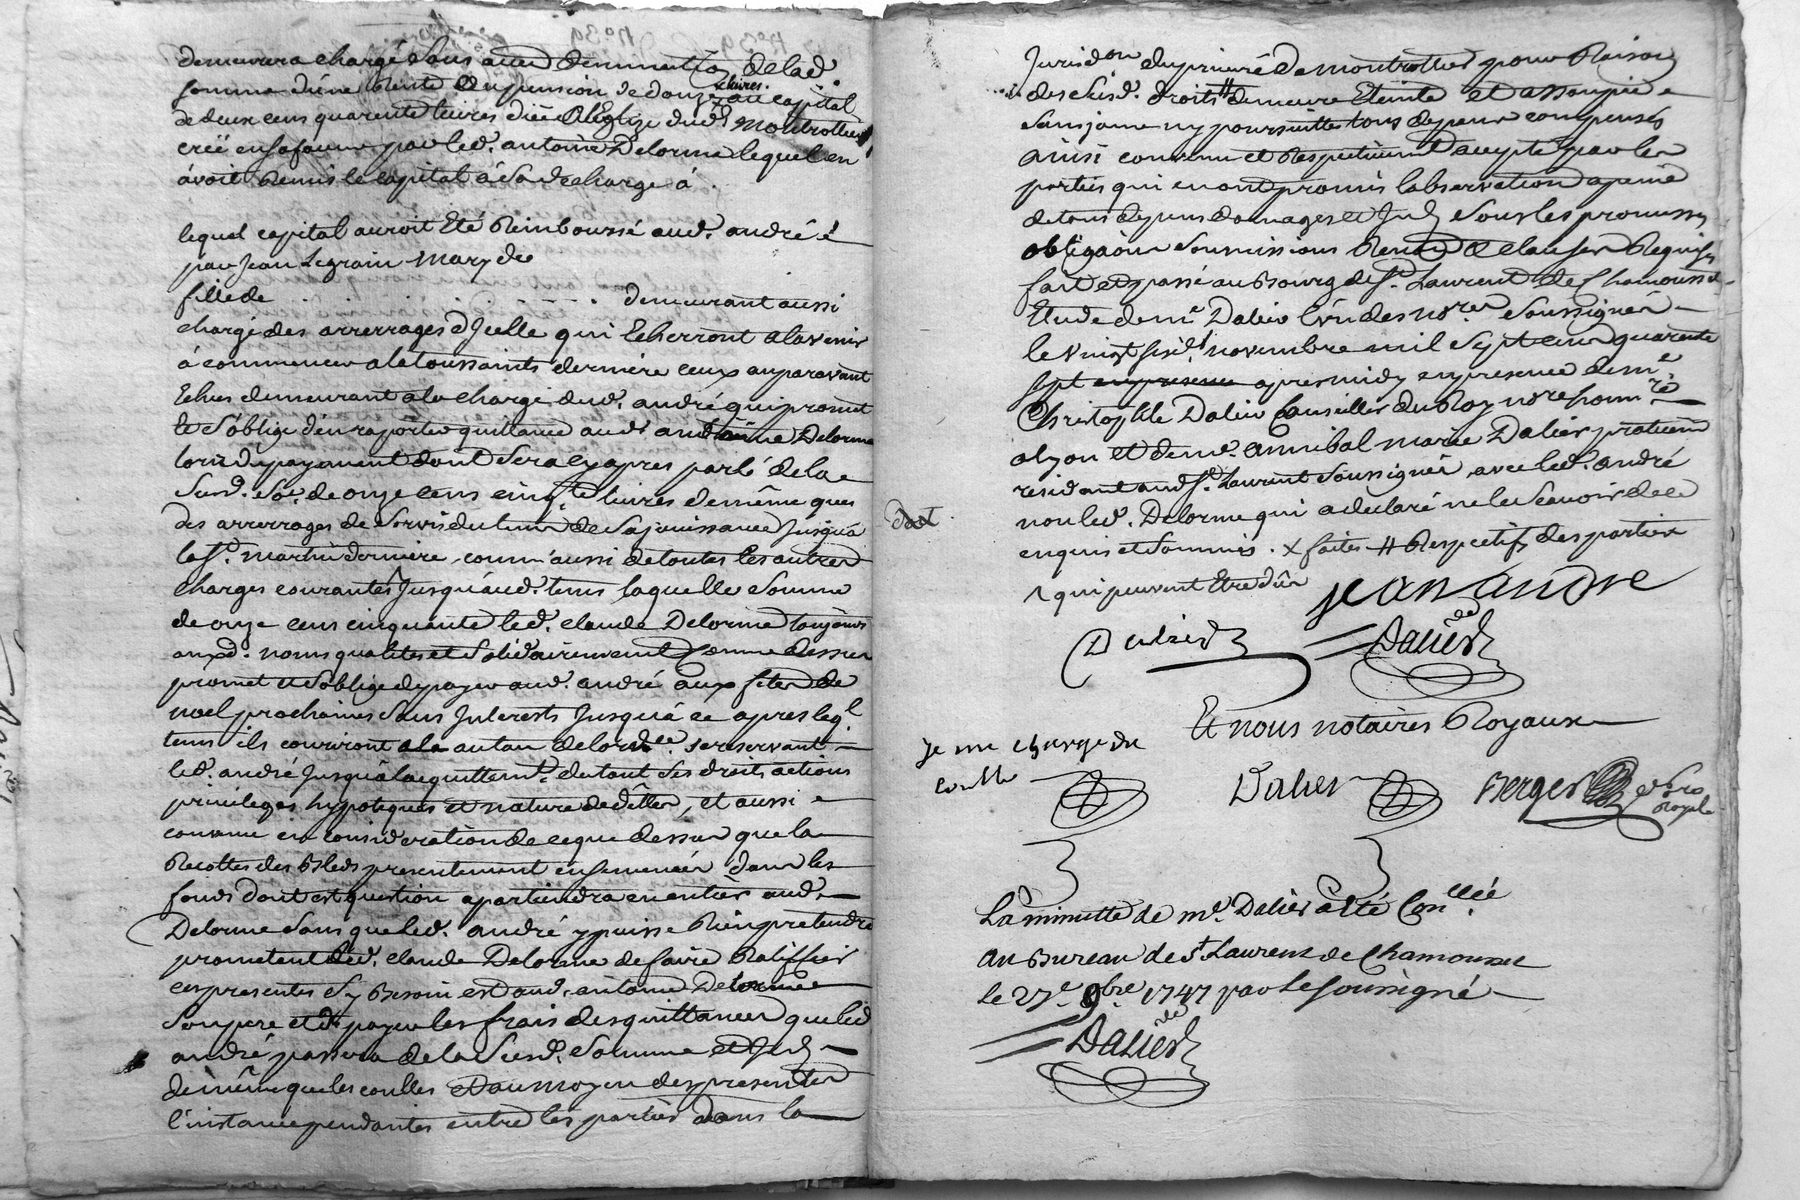 demeurera chargé sans aucune diminution de lad.
somme d'une Rente ou pension de douze livres au capital
de deux cens quarente livres düe a l'Eglise dud. Montrottier
créé en sa faveur par led. antoine Delorme lequel en
avoit Remis le capital à sa decharge à
lequel capital auroit Eté Remboursé aud. andré
par Jean Legrain mary de
fille de . . . demeurant aussi
chargé des arrerages d'Icelle qui Echerront alavenir
à commencer ala toussaints derniere ceux auparavant
Echus demeurant ala charge dud. andré qui promet
Et s'oblige d'en raporter quittance aud. antoine Delorme
lors du payement dont sera cy apres parlé de la
susd. so.e de onze cens cinq.te livres de même que
des arrerages de servis du tems de sa jouissance Jusqu'a
la S.t martin derniere, comm'aussi de toutes les autres
charges courantes Jusqu'aud. tems laquelle somme
de onze cens cinquante led. claude Delorme toujours
auxd. noms qualités et solidairement comme dessus
promet et s'oblige de payer aud. andré aux fetes de
noel prochaines sans Interests Jusqu'a ce apres leq.l
tems ils courront a la autau de lord.ce se reservant
led. andré Jusqu'a l'acquittem.t du tout ses droits actions
privileges hypoteques et nature de dettes, et aussi
convenu en consideration de ce que dessus que la
Recottes des Bleds presentement ensemencés dans les
fonds dont est question apartiendra en entier aud.
Delorme sans que led. andré y puisse Rien pretendre
prometent led. claude Delorme de faire Ratiffier
ces presentes s'y Besoin est aud. antoine Delorme
son pere et de payer les frais des quittances que led
andré passera de la susd. somme et Jnd.
de même que les coultes et au moyen des presentes
l'instance pendantes entre les parties dans la
Jurisd.on du prieuré de montrottier pour Raison
des susd. droits # demeure Eteinte et assoupie
sans jame ny poursuittes tous depens compensés
ainsi convenu et Respectivement accepté par les
parties qui en ont promis l'observation a peine
de tous depens domages et Jnd. sous les promesses
obligaōn soumissions Renon.on & clauses Requises
fait et passé au Bourg de S.t Laurent de Chamousset
Etude de m.e Dalier l'un des no.res soussignés
le vingt six.e novembre mil sept cens quarente
sept en presence apres midy en presence de m.e
Christophle Dalier Conseiller du Roy no.re honn.re
a lyon et de m.e annibal marie Dalier praticien
residant aud S.t Laurent soussignés avec led. andré
non led. Delorme qui a declaré ne le scavoir de ce
enquis et sommé. x faites # Respectifs des parties
qui peuvent Etre dûs
jean andre
Dalier
Dalier
Et nous notaires Royaux
je me charge du
coulte
Dalier
Berger no.re
Royal
La minutte de m.e Dalier a Eté Con.llée
au Bureau de S.t Laurent de Chamousset
le 27.e 9bre 1747 par le soussigné
Dalier